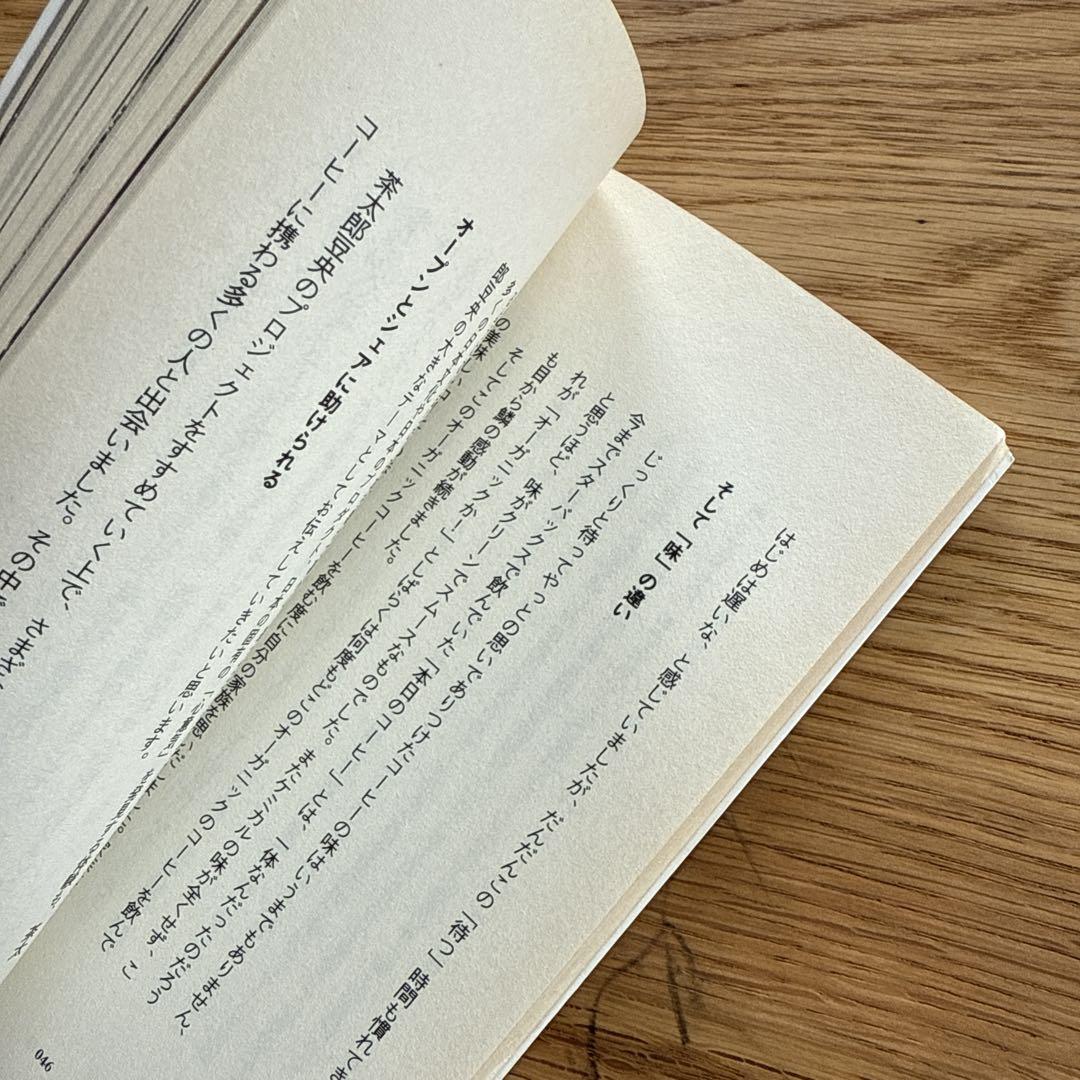 はじめは遅いな、と感じていましたが、だんだんこの「待つ」時間も慣れてき
そして「味」の違い
じっくりと待ってやっとの思いでありつけたコーヒーの味はいうまでもありません、
今までスターバックスで飲んでいた「本日のコーヒー」とは、一体なんだったのだろう
と思うほど、味がクリーンでスムースなものでした。またケミカルの味が全くせず、こ
れが「オーガニックか!」としばらくは何度もどこのオーガニックのコーヒーを飲んで
も目から鱗の感動が続きました。
そしてこのオーガニックコーヒーを飲む度に自分の家族を思いだしま
郎豆央の大きなテーマとしてお伝えしていきたいと思います。
オープンとシェアに助けられる
茶太郎豆央のプロジェクトをすすめていく上で、さまざ
コーヒーに携わる多くの人と出会いました。その中
046